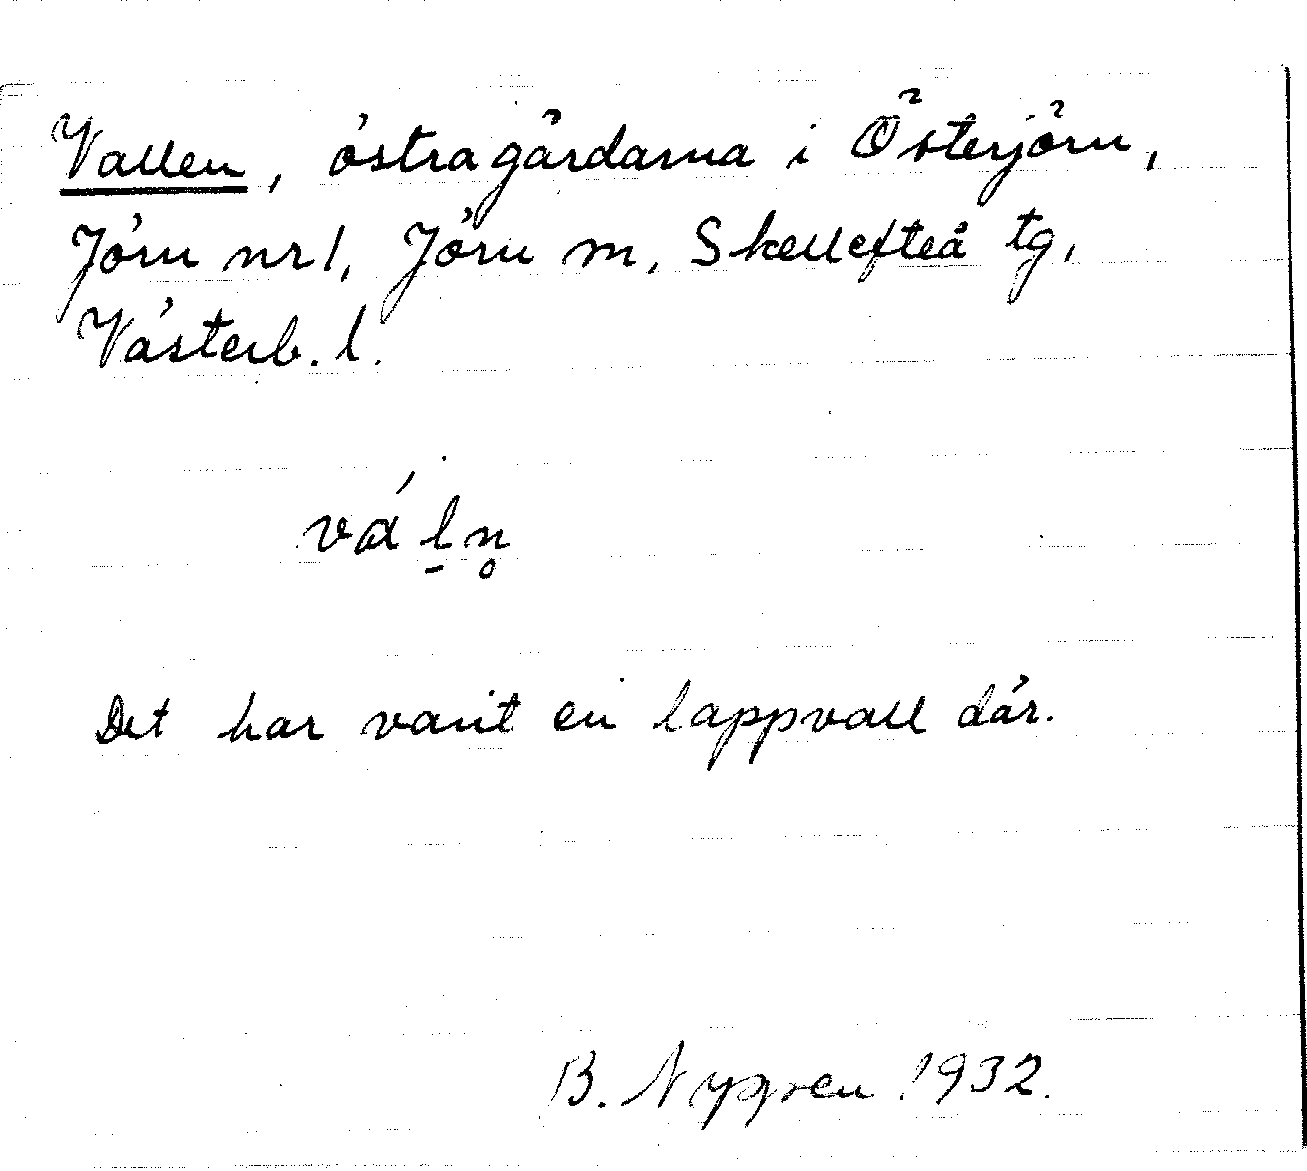 Vallen, östragårdarna i Österjörn,
Jörn nr 1, Jörn sn, Skellefteå tg,
Västerb. l.
vá l̠n̥
Det har varit en lappvall där.
B. Nygren 1932.